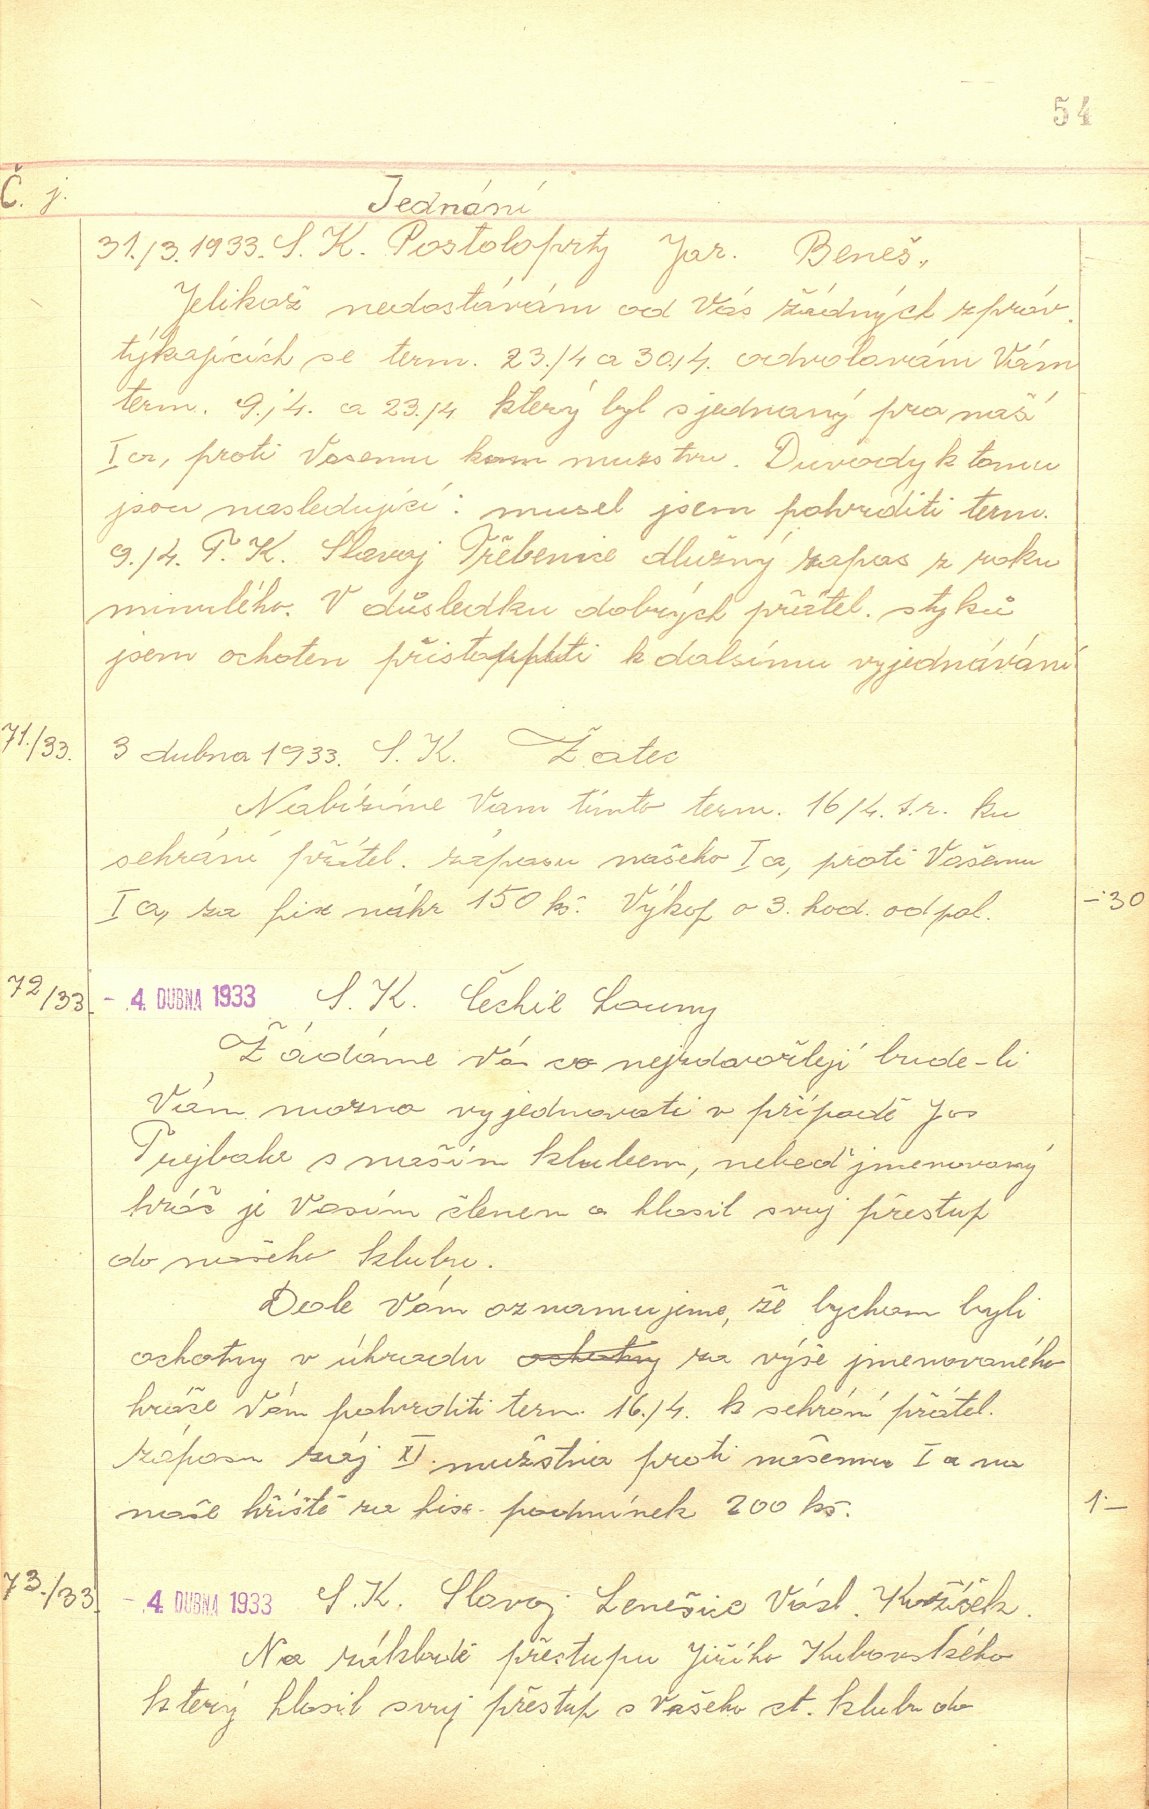 54
Č. j. Jednání
31./3. 1933. S. K. Postoloprty Jar. Beneš.,
Jelikož nedostávám od Vás žádných zpráv.
týkajících se term. 23./4 a 30./4. odvolavám Vám
term. 9./4. a 23./4 který byl sjednaný pro naš
Ia, proti Vasemu muzstvu. Duvody k tomu
jsou nasledující: musel jsem potvrditi term.
9./4. T. K. Slavoj Třebenice dlužný zapas z roku
minulého. V důsledku dobrých přátel. styků
jsem ochoten přistoupiti k dalsímu vyjednávání
71./33. 3 dubna 1933. S. K. Žatec
Nabízíme Vam tímto term. 16/4. t.r. ku
sehrání přátel. zápasu našeho Ia, proti Vašemu
Ia, za fix náhr 150 kč. Výkop o 3. hod. odpol. -·30
72/33. - 4. DUBNA 1933 S. K. Čechie Louny
Žádáme Vá co nejzdvořleji bude-li
Vám mozno vyjednavati v případě Jos
Trejbale s naším klubem, nebeď jmenovaný
hráč je Vasím členem a hlasil svuj přestup
do našeho klubu.
Dale Vám oznamujeme, že bychom byli
ochotny v úhradu ochotny za výše jmenovaného
hráče Vám potvrditi term. 16./4. k sehrání přátel.
zápasu XI. mužstva proti našemu Ia na
naše hřiště za fix. podmínek 200 kč. 1·-
73./33. - 4. DUBNA 1933 S. K. Slavoj Lenešice Václ.
Na základě přestupu Jiřího Kubovského
který hlasil svuj přestup s Vašeho ct. klubu do